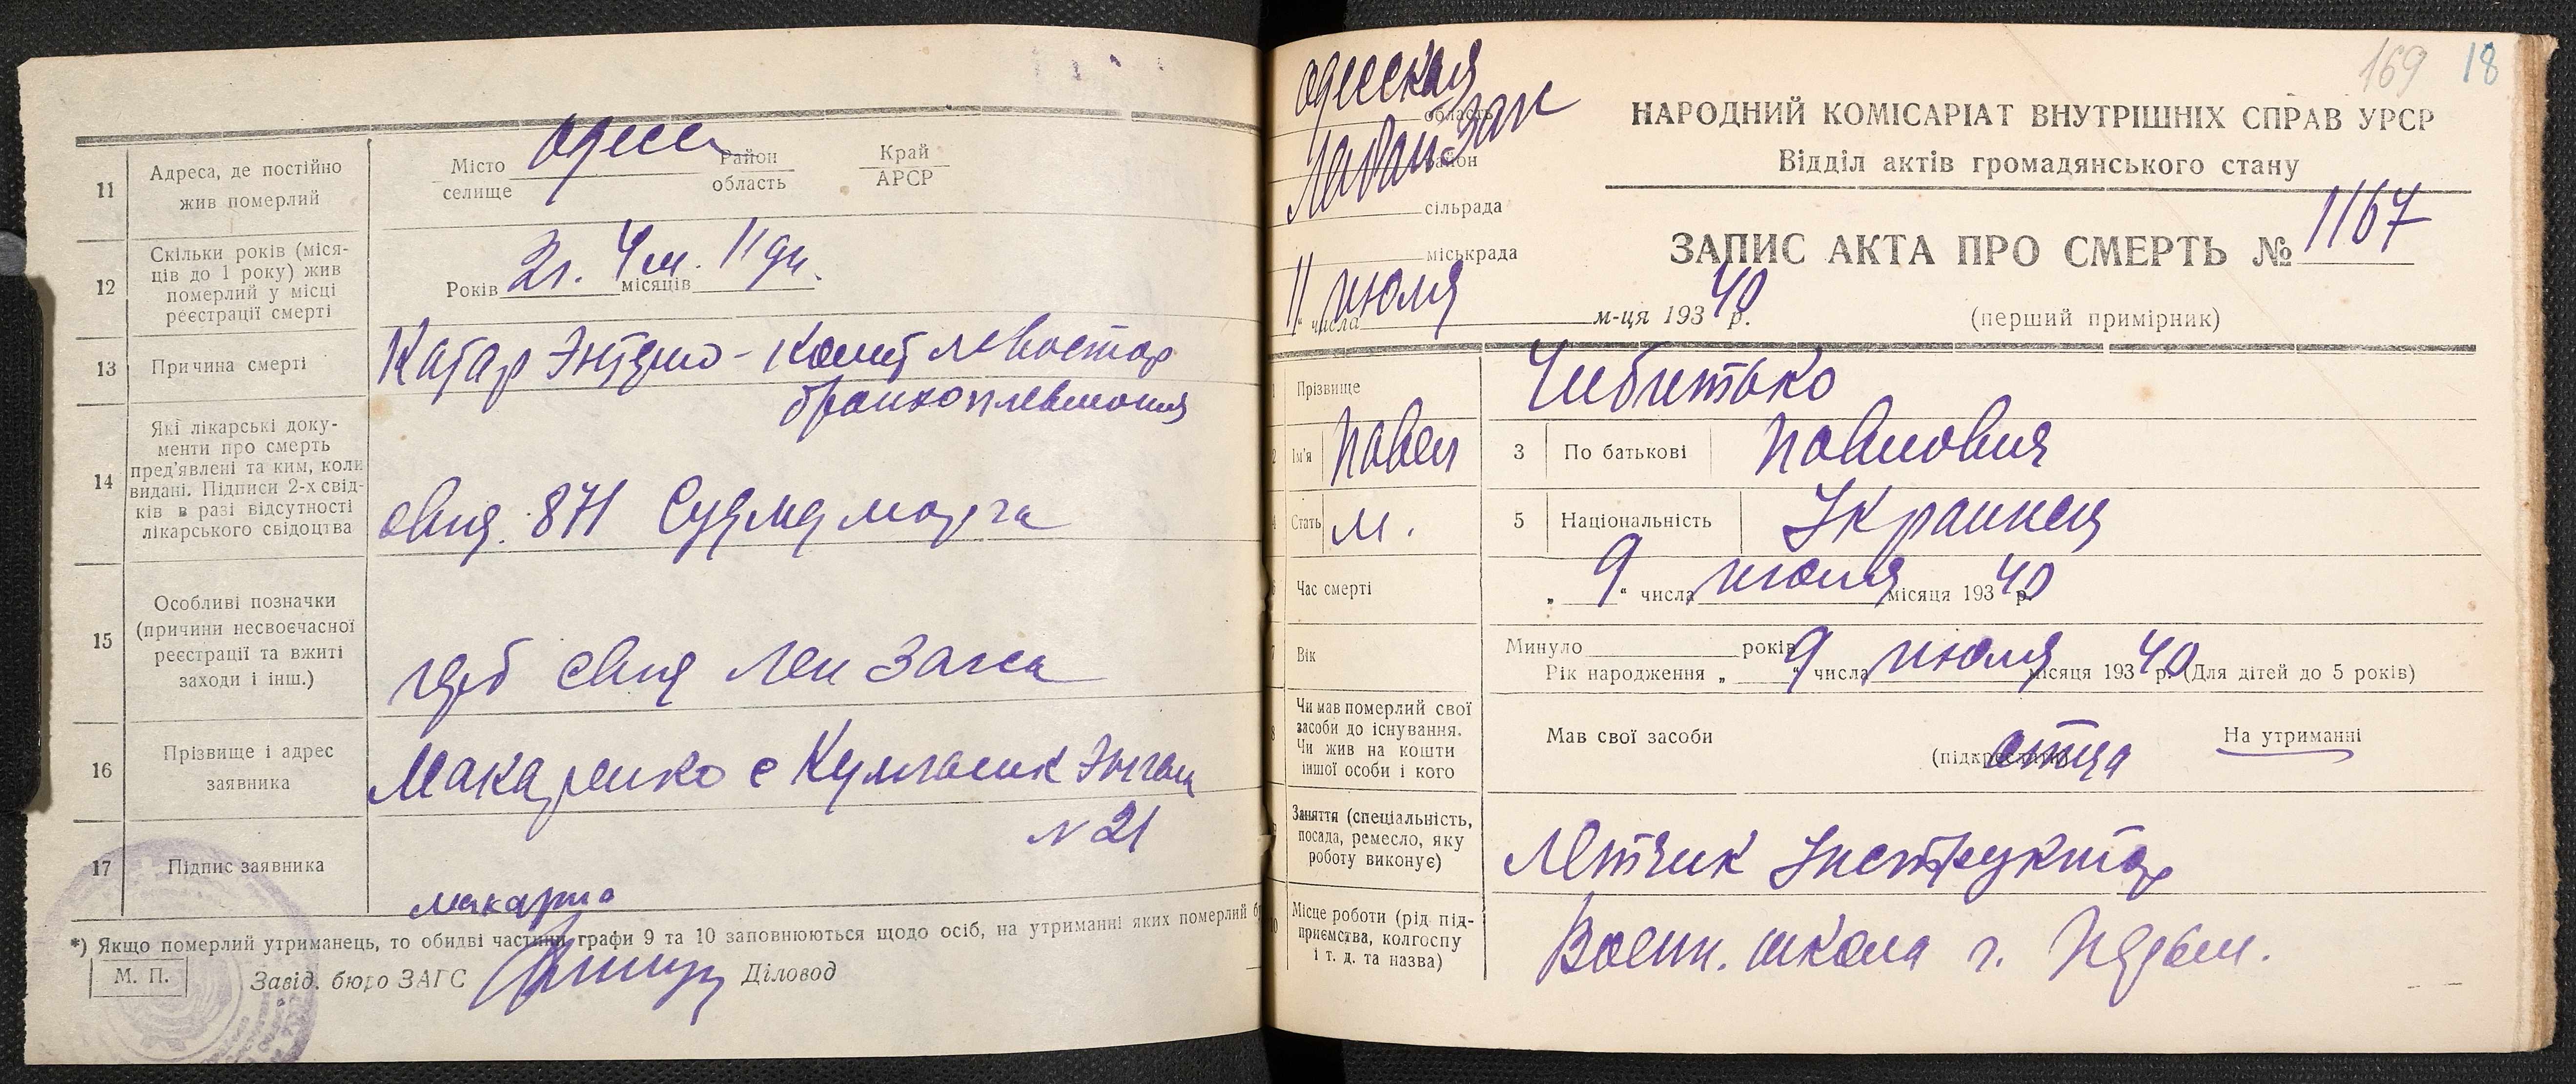 11
Адреса, де постійно
жив померлий
Місто Одесса Район Край
селище область АРСР
12
Скільки років (міся-
ців до 1 року) жив
померлий у місці
реєстрації смерті
Років 2г. місяців 4 м. 11 дн.
13
Причина смерті
Катар Энтеро-
бронхопневмония
14
Які лікарські доку-
менти про смерть
пред'явлені та ким, коли
видані. Підписи 2-х свід-
ків в разі відсутності
лікарського свідоцтва
свид. 871 Судмед морга
15
Особливі позначки
(причини несвоєчасної
реєстрації та вжиті
заходи і інш.)
свид Лен Загса
16
Прізвище і адрес
заявника
Макаренко с
N 21
17
Підпис заявника
*) Якщо померлий утриманець, то обидві частини графи 9 та 10 заповнюються щодо осіб, на утриманні яких померлий б
М. П.
Завід. бюро ЗАГС Діловод
169 18
Одесская
область
район
сільрада
міськрада
НАРОДНИЙ КОМІСАРІАТ ВНУТРІШНІХ СПРАВ УРСР
Відділ актів громадянського стану
ЗАПИС АКТА ПРО СМЕРТЬ № 1167
11 " числа июля м-ця 193 40 р.
(перший примірник)
1 Прізвище
2 Ім'я Павел
3 По батькові Павлович
4 Стать м.
5 Національність Украинец
6 Час смерті
„ 9 " числа июля місяця 193 40 р.
7 Вік
Минуло років
Рік народження „ 9 " числа июля місяця 193 40 р. (Для дітей до 5 років)
8
Чи мав померлий свої
засоби до існування.
Чи жив на кошти
іншої особи і кого
Мав свої засоби
(підкреслити)
отца
На утриманні
9
Заняття (спеціальність,
посада, ремесло, яку
роботу виконує)
Летчик Инструктор
10
Місце роботи (рід під-
приємства, колгоспу
і т. д. та назва)
Воен. школа г.